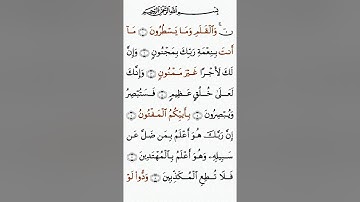 بِسْمِ اللَّهِ الرَّحْمَٰنِ الرَّحِيمِ
نٓ ۚ وَٱلْقَلَمِ وَمَا يَسْطُرُونَ ۝١ مَآ
أَنتَ بِنِعْمَةِ رَبِّكَ بِمَجْنُونٍ ۝٢ وَإِنَّ
لَكَ لَأَجْرًا غَيْرَ مَمْنُونٍ ۝٣ وَإِنَّكَ
لَعَلَىٰ خُلُقٍ عَظِيمٍ ۝٤ فَسَتُبْصِرُ
وَيُبْصِرُونَ ۝٥ بِأَييِّكُمُ ٱلْمَفْتُونُ ۝٦
إِنَّ رَبَّكَ هُوَ أَعْلَمُ بِمَن ضَلَّ عَن
سَبِيلِهِۦ وَهُوَ أَعْلَمُ بِٱلْمُهْتَدِينَ ۝٧
فَلَا تُطِعِ ٱلْمُكَذِّبِينَ ۝٨ وَدُّوا۟ لَوْ